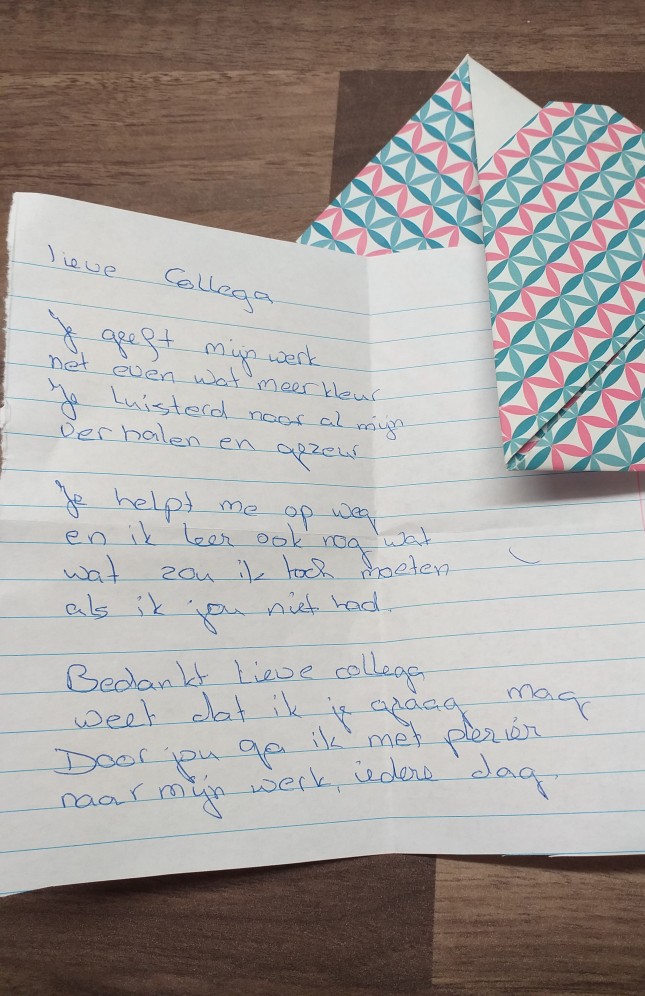 lieve Collega
Je geeft mijn werk
net even wat meer kleur
Je luisterd naar al mijn
verhalen en gezeur
Je helpt me op weg
en ik leer ook nog wat
wat zou ik toch moeten
als ik jou niet had.
Bedankt lieve collega
weet dat ik je graag mag
Door jou ga ik met plezier
naar mijn werk, iedere dag.